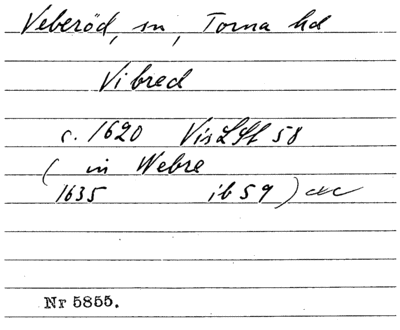 Veberöd, sn, Torna hd
Vibred
c. 1620 VisLSt 58
( in Webre
1635 ib 59 ) etc
Nr 5855.